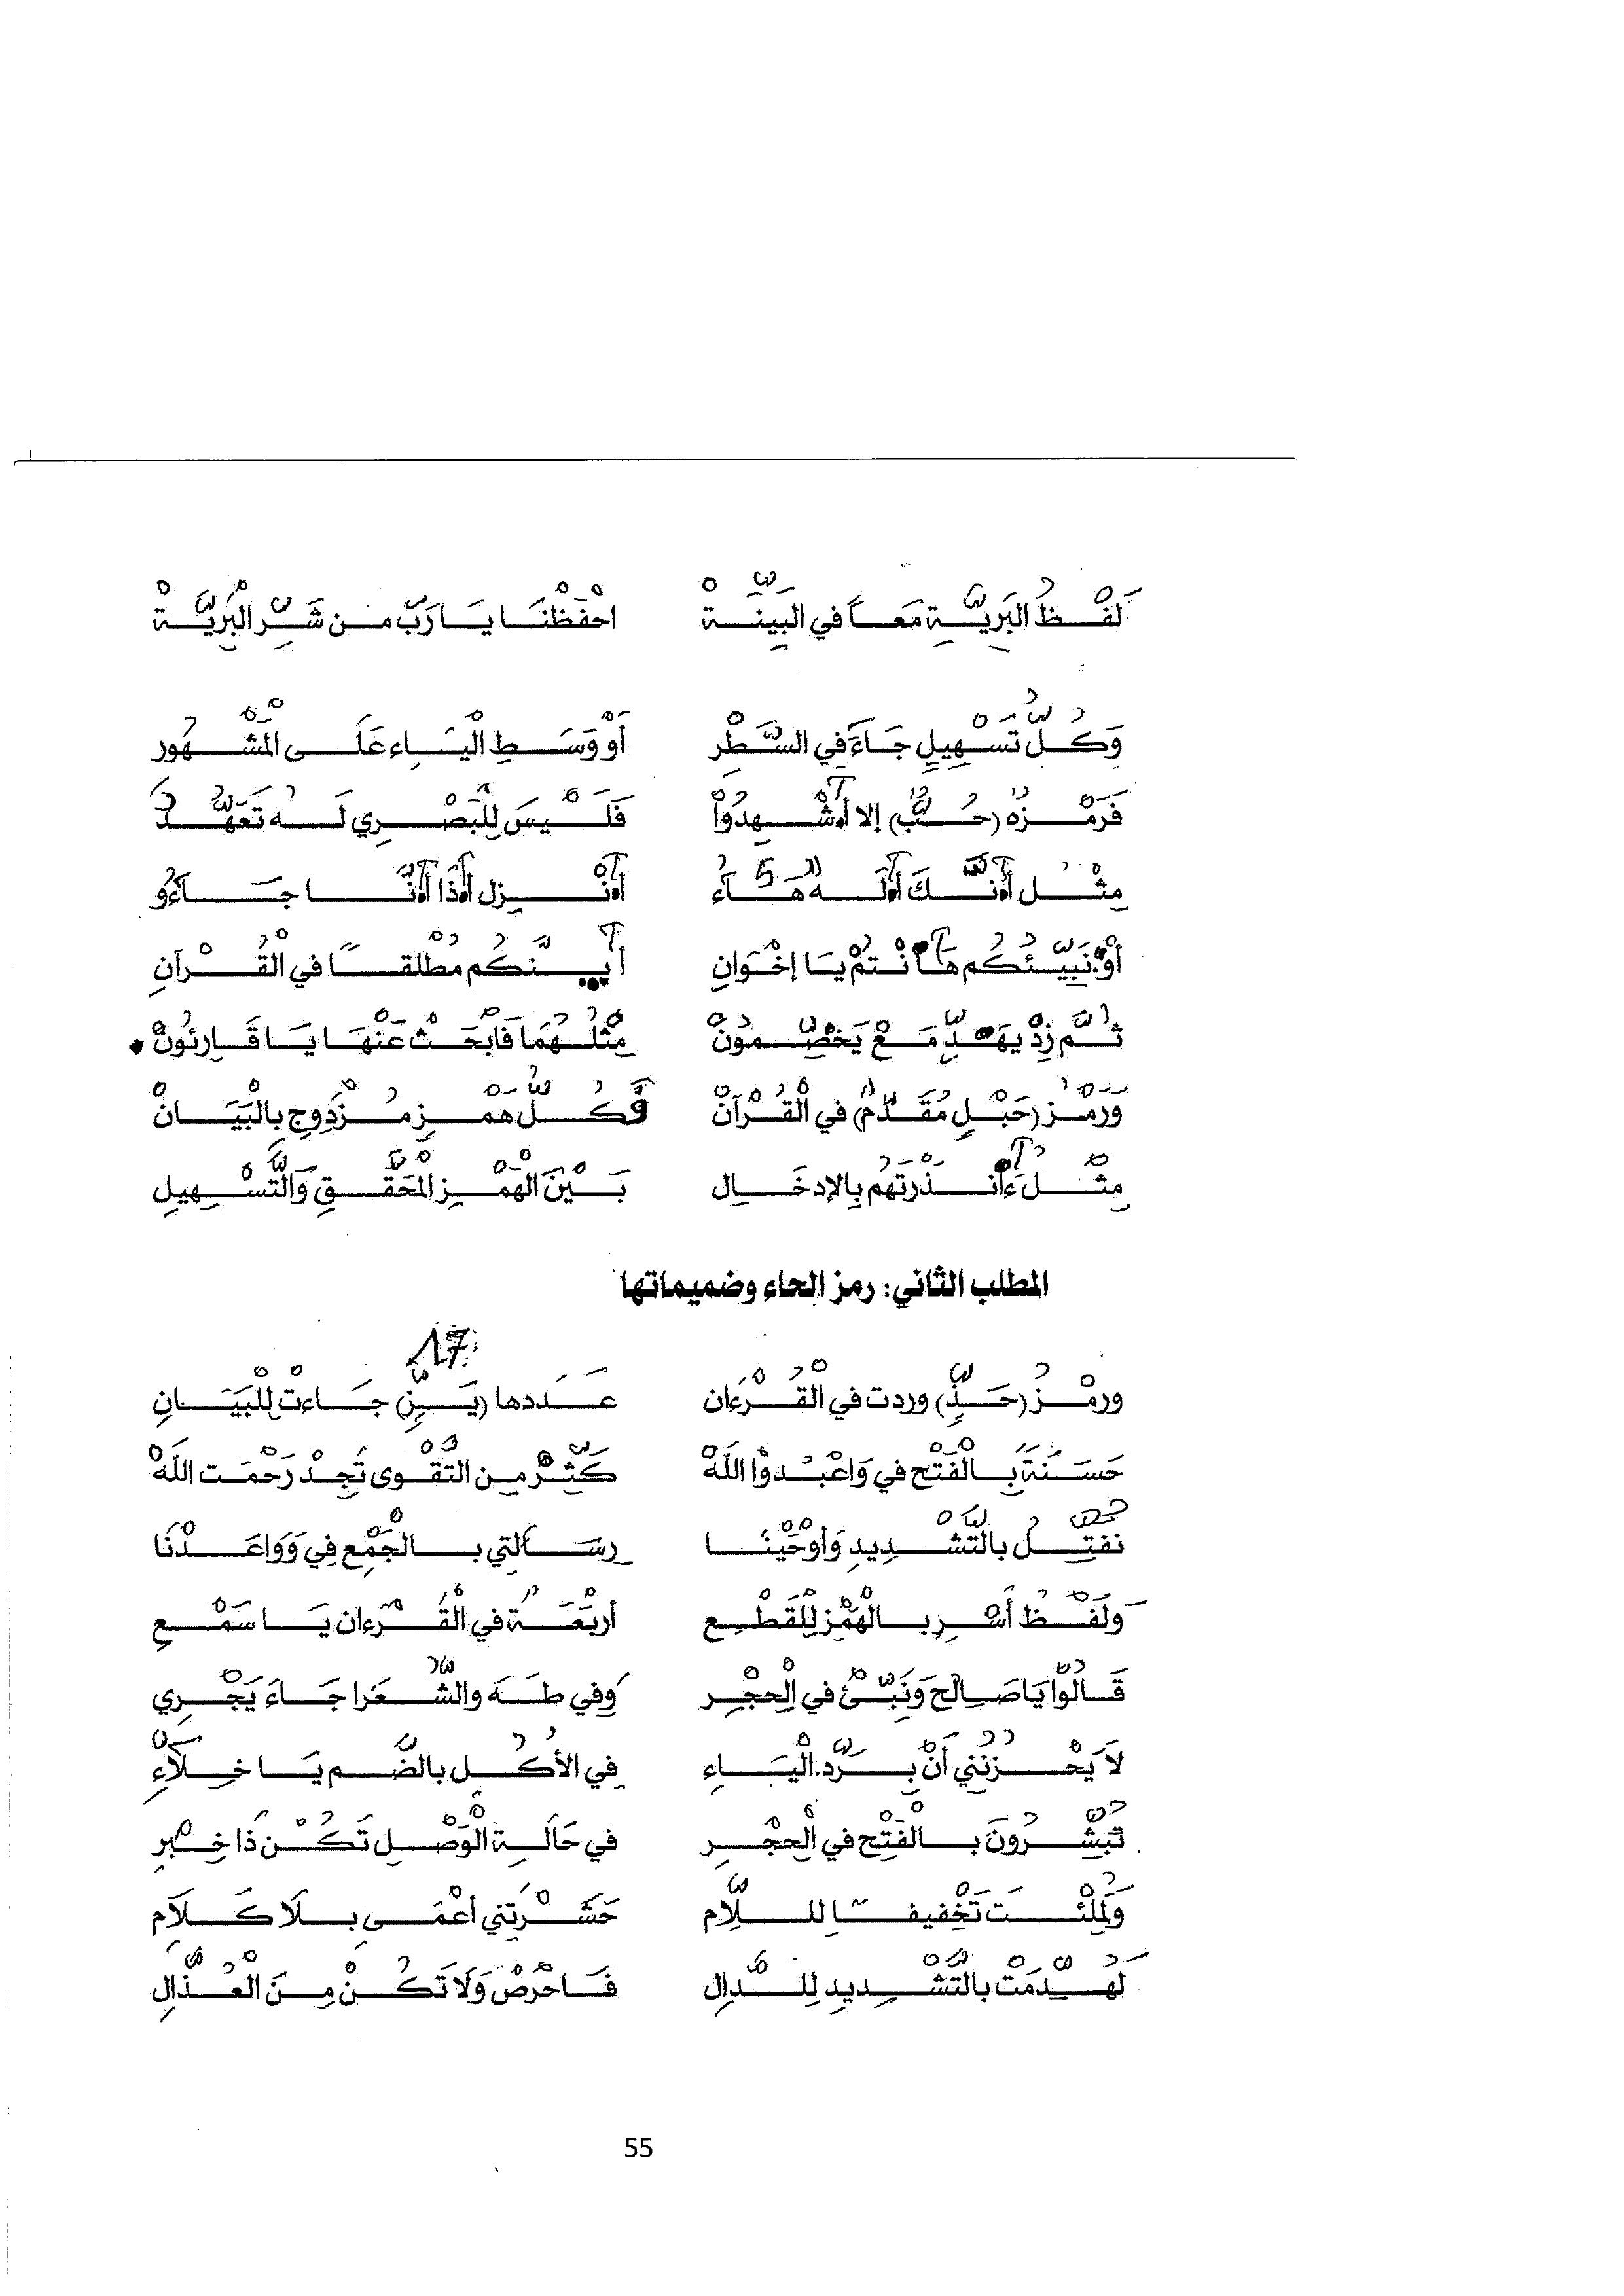 لَفْظُ البَرِيَّةِ مَعاً في البَيِّنَةْ احْفَظْنَا يَا رَبِّ من شَرِّ الْبَرِيَّةْ
وَكُلُّ تَسْهِيلٍ جَاءَ في السَّطْرِ أَوْ وَسَطِ الْيَاءِ عَلَى المَشْهُورِ
فَرَمْزُهُ (حُبٌّ) إلا أَشْهِدُوا فَلَيْسَ لِلْبَصْرِي لَهُ تَعَهُّدُ
مِثْلُ أَئِنَّكَ أَئِلَهُ هَاءُ أَءُنْزِلَ أَئِذَا أَئِنَّا جَاءُو
أَؤُنَبِّئُكُم هَاأَنْتُمْ يَا إخْوَانِ أَيِنَّكُم مطلقاً في القُرْآنِ
ثُمَّ زِدْ يَهَدِّ مَعْ يَخَصِّمُونْ مِثْلُهُمَا فَابْحَثْ عَنْهَا يَا قَارِئُونْ
وَرَمْزُ (حَبْلٍ مُقَدَّمٌ) في الْقُرْآنْ فَكُلُّ هَمْزٍ مُزْدَوِجٍ بِالْبَيَانْ
مِثْلُ ءَأَنْذَرْتَهُمْ بِالإدخَالِ بَيْنَ الهَمْزِ المُحَقَّقِ وَالتَّسْهِيلِ
المطلب الثاني: رمز الحاء وضميماتها
17
ورمْزُ (حَذٍّ) وردت في الْقُرْءَان عَددها (يَزٍّ) جَاءتْ لِلْبَيَانِ
حَسَنَةً بِالْفَتْحِ في وَاعْبُدُوا اللَهْ كَثِّرْ مِن التَّقْوى تَجِدْ رَحْمَت اللَهْ
نفتِلُ بالتَّشْدِيدِ وَأَوْحَيْنَا رِسَالَتِي بِالْجَمْعِ فِي وَوَاعَدْنَا
وَلَفْظُ أَسْرِ بِالْهَمْزِ لِلْقَطْعِ أَرْبَعَةٌ في الْقُرْءان يَا سَمْعِ
قَالُوا يَا صَالِحْ وَنَبِّئْ في الْحِجْرِ وفي طَهَ والشُّعَرا جَاءَ يَجْرِي
لاَ يَحْزُنُنِي أَنْ بِرَدِّ الْيَاءِ فِي الأُكُلِ بالضَّم يَا خِلاَّءِ
تُبَشِّرُونَ بِالْفَتْحِ في الْحِجْرِ في حَالَةِ الْوَصْلِ تَكُنْ ذَا خِبْرِ
وَلَمُلِئْت تَخْفِيفاً لِلَّامِ حَشَرْتَنِي أَعْمَى بِلَا كَلَامِ
لَهُدِّمَتْ بالتَّشْدِيدِ لِلدَّالِ فَاحْرَصْ وَلَا تَكُنْ مِنَ الْعُذَّالِ
55